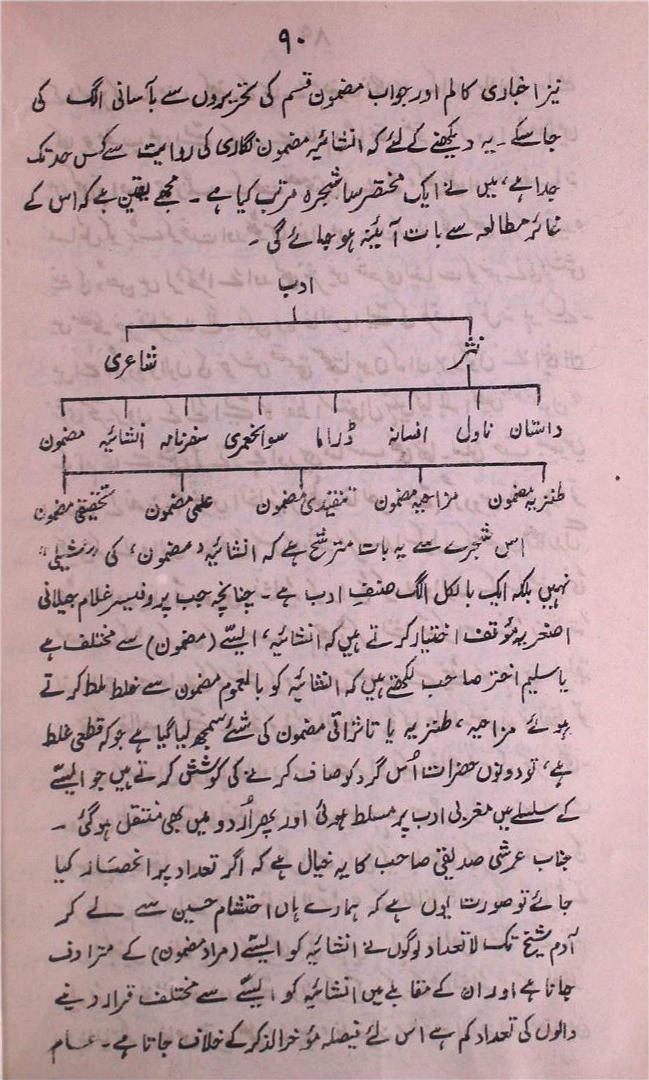 ۹۰
نیز اخباری کالم اور جواب مضمون قسم کی تحریروں سے بآسانی الگ کی
جا سکے۔ یہ دیکھنے کے لئے کہ انشائیہ مضمون نگاری کی روایت سے کس حد تک
جدا ہے، میں نے ایک مختصر سا شجرہ مرتب کیا ہے۔ مجھے یقین ہے کہ اس کے
غائر مطالعہ سے بات آئینہ ہو جائے گی۔
ادب
نثر شاعری
داستان ناول افسانہ ڈراما سوانحعمری سفرنامہ انشائیہ مضمون
طنزیہ مضمون مزاحیہ مضمون تنقیدی مضمون علمی مضمون تحقیقی مضمون
اس شجرے سے یہ بات مترشح ہے کہ انشائیہ ’مضمون‘ کی
نہیں بلکہ ایک بالکل الگ صنفِ ادب ہے۔ چنانچہ جب پروفیسر غلام جیلانی
اصغر یہ مؤقف اختیار کرتے ہیں کہ انشائیہ، ایسّے (مضمون) سے مختلف ہے
یا سلیم اختر صاحب لکھتے ہیں کہ انشائیہ کو بالعموم مضمون سے غلط ملط کرتے
ہوئے مزاحیہ، طنزیہ یا تاثراتی مضمون کی شے سمجھ لیا گیا ہے جو کہ قطعی غلط
ہے، تو دونوں حضرات اُس گرد کو صاف کرنے کی کوشش کرتے ہیں جو ایسّے
کے سلسلے میں مغربی ادب پر مسلط ہوئی اور پھر اُردو میں بھی منتقل ہو گئی۔
جناب عرشی صدیقی صاحب کا یہ خیال ہے کہ اگر تعداد پر انحصار کیا
جائے تو صورت یوں ہے کہ ہمارے ہاں احتشام حسین سے لے کر
آدم شیخ تک لاتعداد لوگوں نے انشائیہ کو ایسّے (مراد مضمون) کے مترادف
جانا ہے اور ان کے مقابلے میں انشائیہ کو ایسّے سے مختلف قرار دینے
والوں کی تعداد کم ہے اس لئے فیصلہ مؤخرالذکر کے خلاف جاتا ہے۔ عام